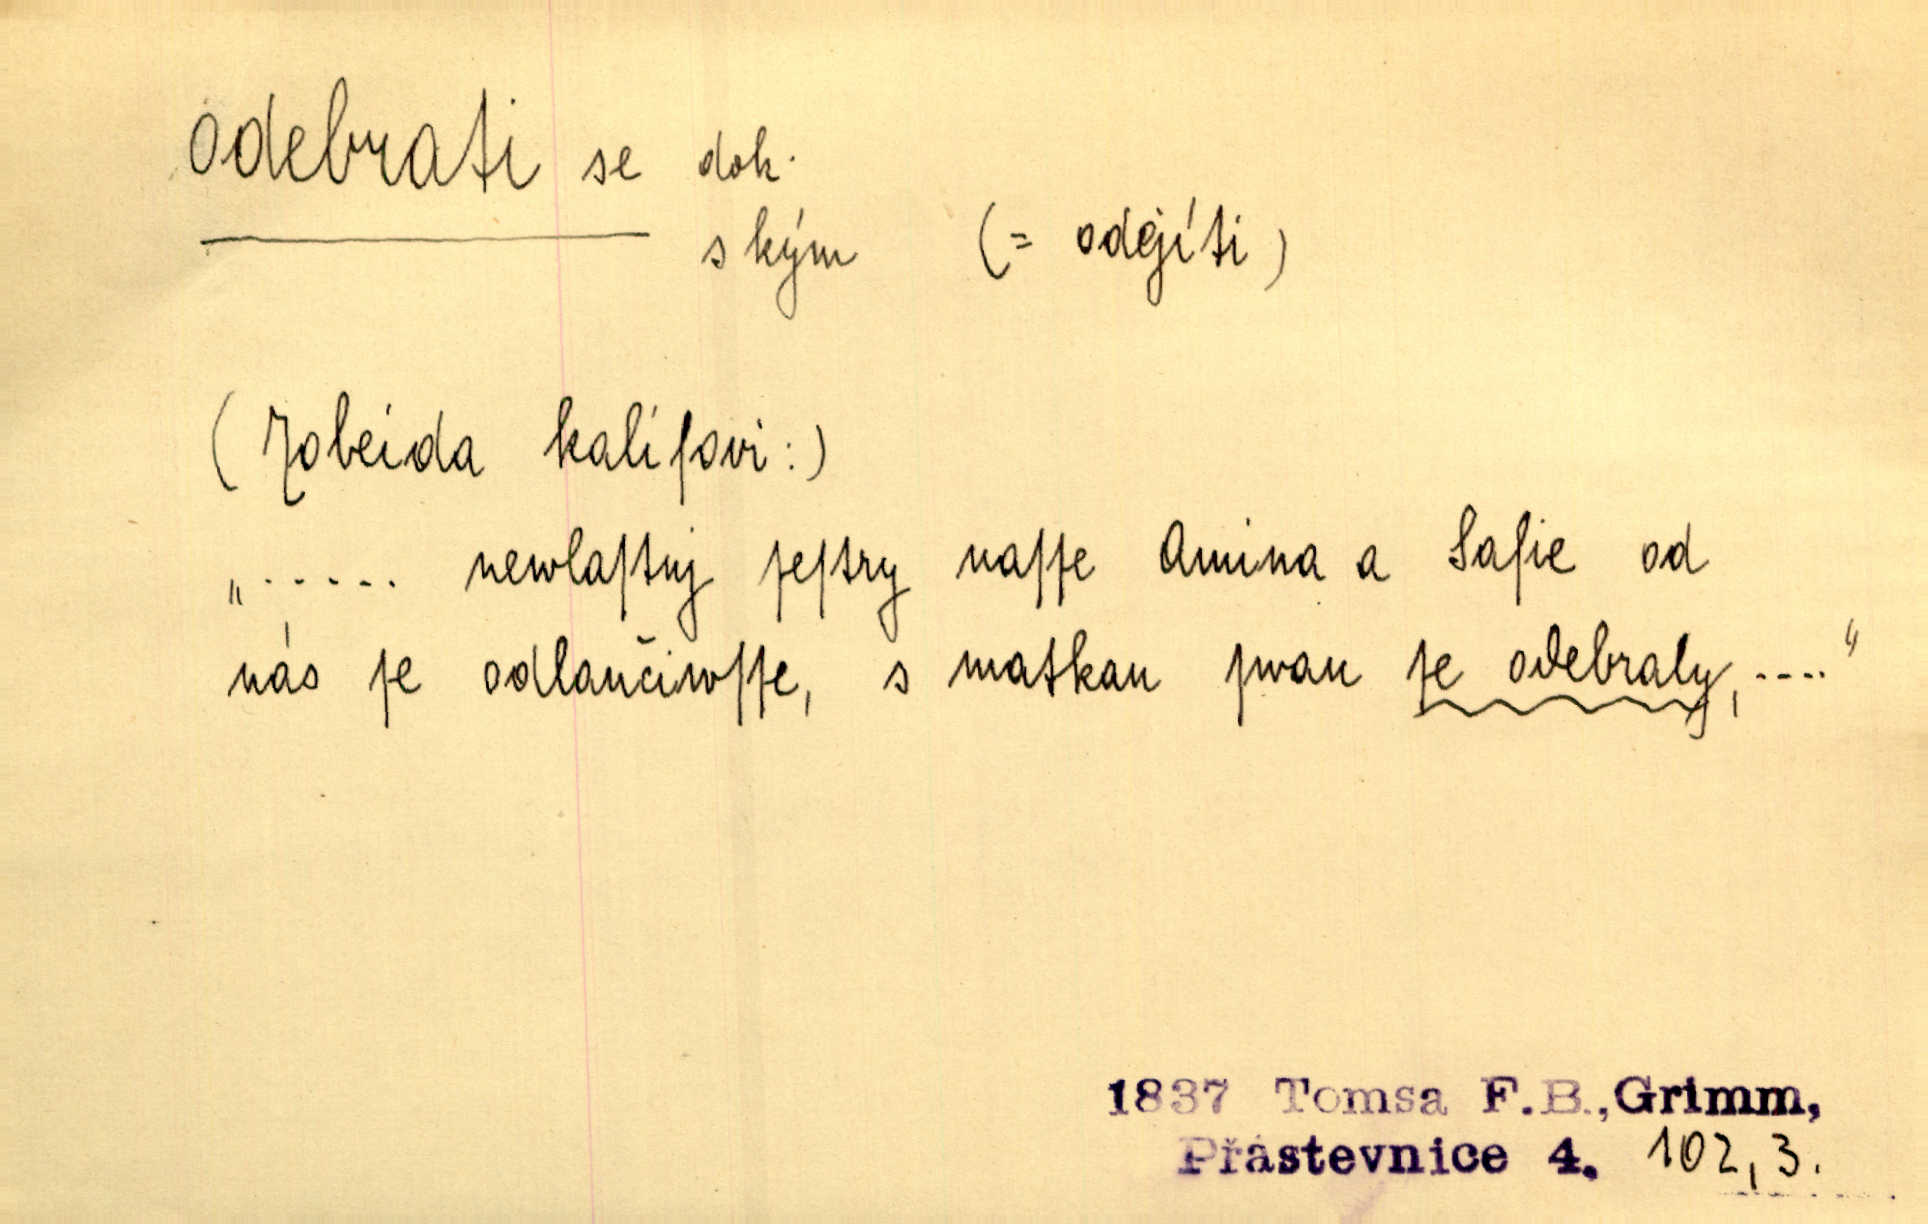 odebrati se dok.
s kým (= odejíti)
(Zobeida kalifovi:)
„..... newlaſtnj ſeſtry naſſe Amina a Safie od
nás ſe odlaučiwſſe, s matkau ſwau ſe odebraly, ...."
1837 Tomsa F.B., Grimm,
Přástevnice 4. 102,3.